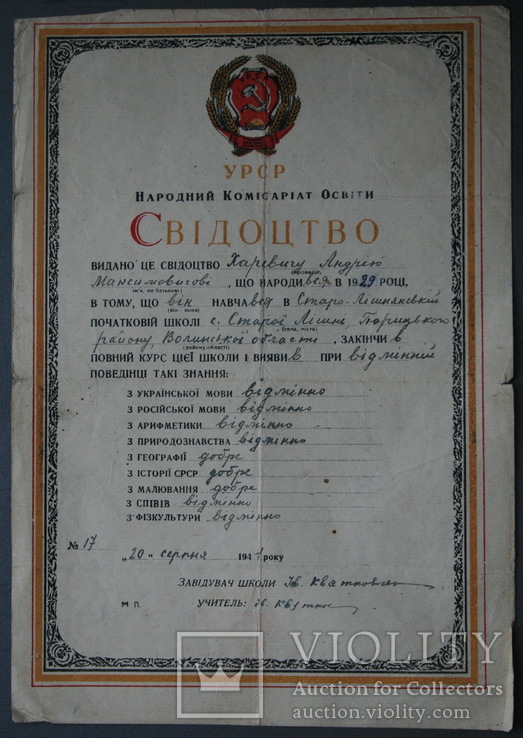 УРСР
НАРОДНИЙ КОМІСАРІАТ ОСВІТИ
СВІДОЦТВО
ВИДАНО ЦЕ СВІДОЦТВО Харевичу Андрію
(прізвище,
Максимовигові, ЩО НАРОДИвся В 1929 РОЦІ,
(ім'я, по батькові)
В ТОМУ, ЩО він НАВЧАвся В Старо-Лішнянській
(він - вона)
ПОЧАТКОВІЙ ШКОЛІ с. Старої Лішні Порицького
(села, міста)
району, Волинської області, ЗАКІНЧИв
(району, області)
ПОВНИЙ КУРС ЦІЄЇ ШКОЛИ І ВИЯВИв ПРИ відмінній
ПОВЕДІНЦІ ТАКІ ЗНАННЯ:
З УКРАЇНСЬКОЇ МОВИ відмінно
З РОСІЙСЬКОЇ МОВИ відмінно
З АРИФМЕТИКИ відмінно
З ПРИРОДОЗНАВСТВА відмінно
З ГЕОГРАФІЇ добре
З ІСТОРІЇ СРСР добре
З МАЛЮВАННЯ добре
З СПІВІВ відмінно
З ФІЗКУЛЬТУРИ відмінно
№ 17
„20" серпня 1941 року
ЗАВІДУВАЧ ШКОЛИ
М П. УЧИТЕЛЬ:
VIOLITY
Auction for Collectors
auction.violity.com